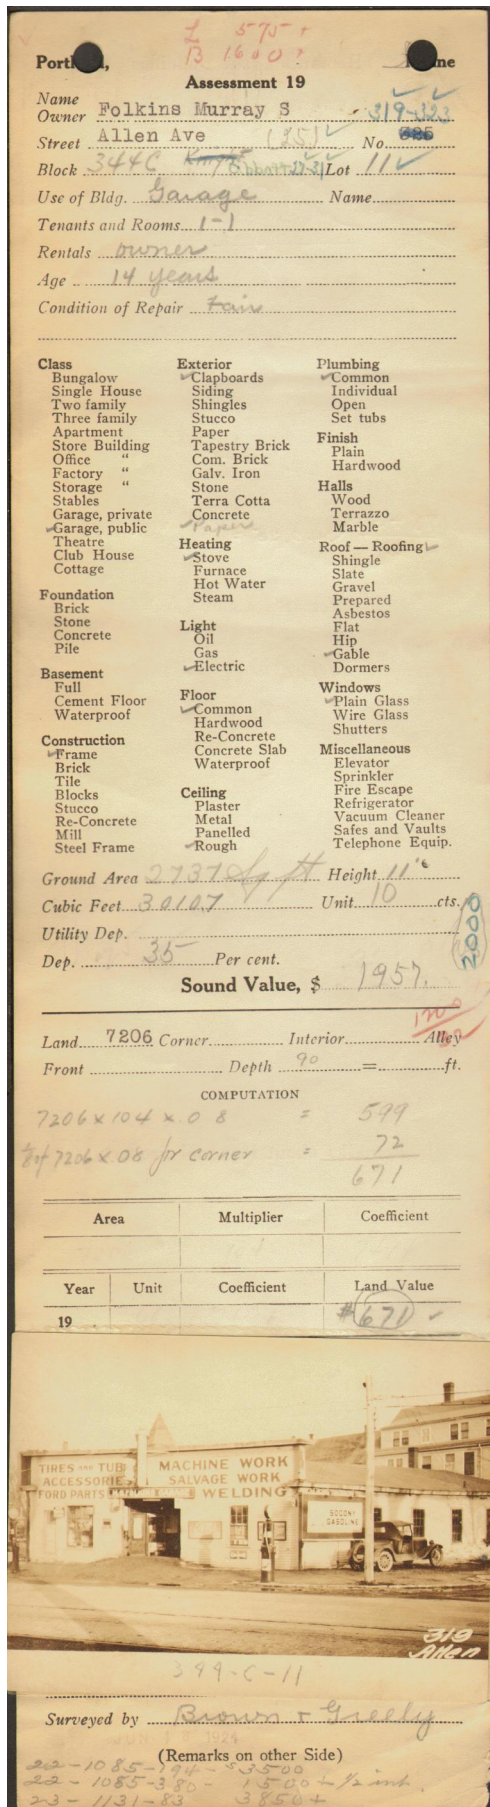 L 575+
B 1600?
Portland, Maine
Assessment 19
Name
Owner Folkins Murray S 319-323
Street Allen Ave (25) No 325
Block 344C Lot 11
Use of Bldg. Garage Name
Tenants and Rooms 1-1
Rentals owner
Age 14 years
Condition of Repair Fair
Class
Bungalow
Single House
Two family
Three family
Apartment
Store Building
Office "
Factory "
Storage "
Stables
Garage, private
Garage, public
Theatre
Club House
Cottage
Foundation
Brick
Stone
Concrete
Pile
Basement
Full
Cement Floor
Waterproof
Construction
Frame
Brick
Tile
Blocks
Stucco
Re-Concrete
Mill
Steel Frame
Exterior
Clapboards
Siding
Shingles
Stucco
Paper
Tapestry Brick
Com. Brick
Galv. Iron
Stone
Terra Cotta
Concrete
Paper
Heating
Stove
Furnace
Hot Water
Steam
Light
Oil
Gas
Electric
Floor
Common
Hardwood
Re-Concrete
Concrete Slab
Waterproof
Ceiling
Plaster
Metal
Panelled
Rough
Plumbing
Common
Individual
Open
Set tubs
Finish
Plain
Hardwood
Halls
Wood
Terrazzo
Marble
Roof — Roofing
Shingle
Slate
Gravel
Prepared
Asbestos
Flat
Hip
Gable
Dormers
Windows
Plain Glass
Wire Glass
Shutters
Miscellaneous
Elevator
Sprinkler
Fire Escape
Refrigerator
Vacuum Cleaner
Safes and Vaults
Telephone Equip.
Ground Area 2737 Sq ft Height 11'
Cubic Feet 30107 Unit 10 cts.
Utility Dep.
2000
Dep. 35 Per cent.
Sound Value, $ 1957.
Land 7206 Corner Interior Alley
Front Depth 90 = ft.
COMPUTATION
7206 x 104 x 08 = 599
1/8 of 7206 x 08 for corner = 72
671
Area Multiplier Coefficient
Year Unit Coefficient Land Value
19 $671
TIRES AND TUBES
ACCESSORIES
FORD PARTS
MACHINE WORK
SALVAGE WORK
WELDING
SOCONY
GASOLINE
319
Allen
344-C-11
Surveyed by Brown & Greely
1924
(Remarks on other Side)
22-1085-194- $3500
22-1085-380- 1500+ 1/2 int.
23-1131-83 3850+